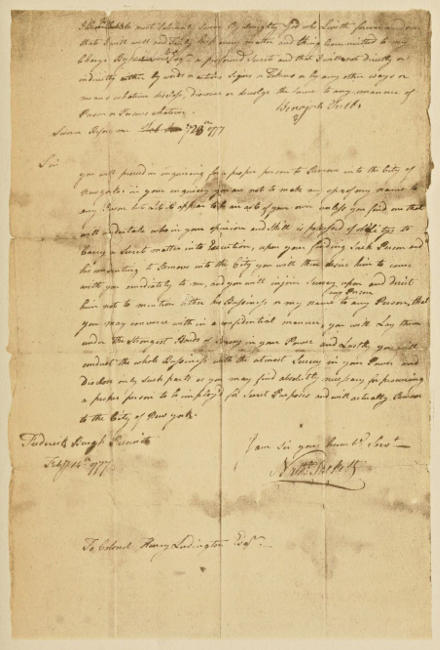 most solemnly Swear By almighty God who liveth forever and ever
that I will well and Truly keep every matter and thing Committed to my
Charge By a profound Secret and that I will not directly or
indirectly by words or actions Signs or Tokens or by any other ways or
means whatever disclose, discover or devulge the Same to any manner of
Person or Persons whatever
Sworn Before me 1777
Sir
you will proceed in inquiring for a proper person to Remove into the City of
in your inquiry you are not to make any use of my name to
any Person but Let it appear to be an act of your own unless you find one that
will undertake who in your opinion and Skill is possessed of abilities to
Carry a Secret matter into Execution, upon your finding Such Person and
his consenting to Remove into the City you will then desire him to come
with you imediately to me, and you will injoin Secrecy upon and direct
him not to mention either his Bussiness or my name to any Person, that
any Person
you may converse with in a confidential manner, you will Lay them
under the Strongest of Secrecy in your Power and Lastly you will
conduct the whole Bussiness with the utmost Secrecy in your Power and
Disclose only Such parts as you may find absolutely necessary for procuring
a proper person to be imploy'd for Secret Purposes and will actually Remove
to the City of New york.
I am Sir your humb Servt
Fredericksburgh Precinct
Feby 1777
Nathl Sackett
To Colonel Henry Ludington Esqr